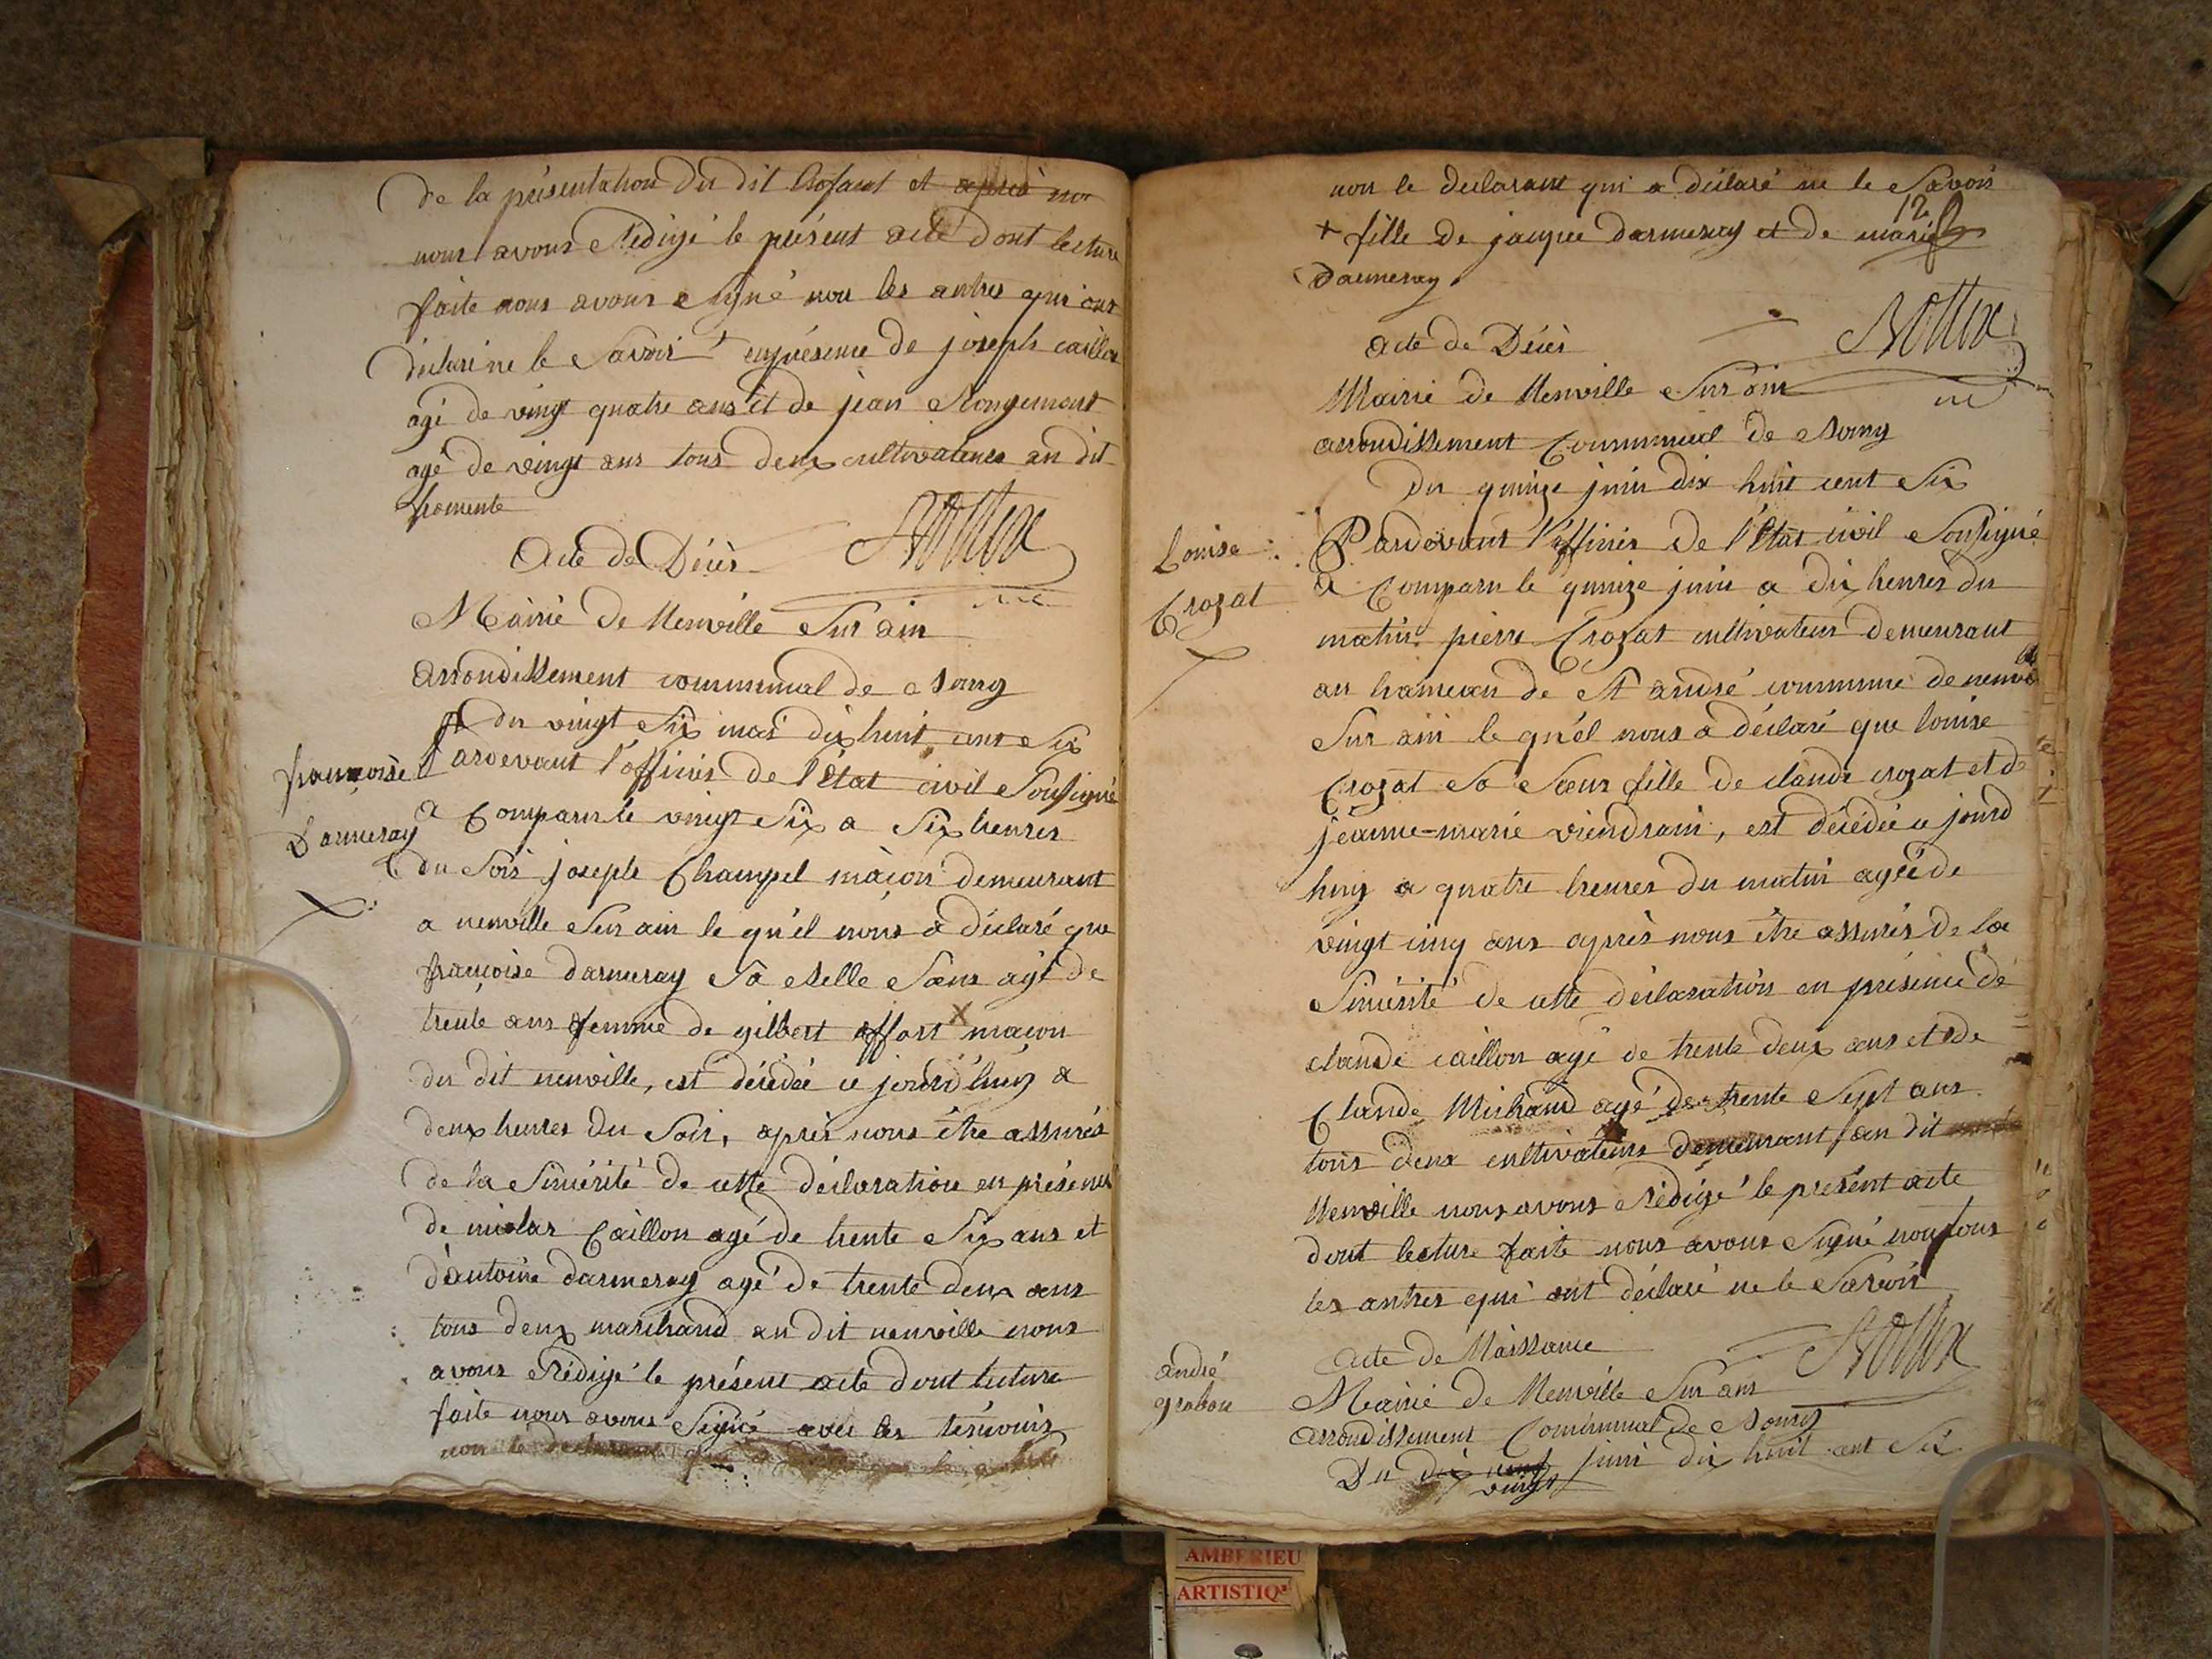 de la présentation du dit Enfant et après nor
nous avons Rédigé le présent acte dont lecture
faite nous avons signé non les autres qui ont
déclaré ne le Savoir enprésence de joseph caillon
agé de vingt quatre ans et de jean Rongemont
agé de vingt ans tous deux cultivateurs au dit
homente
Acte de Décès
Mairie de Neuville Sur ain
arrondissement communal de Bourg
du vingt Six mai dix huit cent Six
françoise
Darmeray
Pardevant l'officier de l'Etat civil Soussigné
a Comparu le vingt Six a Six heures
du Soir joseph Champel maçon demeurant
a neuville Sur ain le quél nous à déclaré que
françoise darmeray Sa Belle Sœur agé de
trente ans femme de gilbert affort X maçon
du dit neuville, est décédée ce jourd'huy a
deux heures du Soir, après nous être assurés
de la Sincérité de cette déclaration en présence
de nicolas Caillon agé de trente Six ans et
d'antoine darmeray agé de trente deux ans
tous deux marchand au dit neuville nous
avons Rédigé le présent acte dont lecture
faite nous avons Signé avec les témoins
non le declarant qui a
non le declarant qui a déclaré ne le Savoir
12
+ fille de jacque darmeray et de marie
Daumeray
acte de Décès
Mairie de Neuville Sur ain
arrondissement Communal de Bourg
du quinze juin dix huit cent Six
Louise
Crozat
Pardevant l'officier de l'Etat civil Soussigné
a Comparu le quinze juin a dix heures du
matin pierre Crozat cultivateur demeurant
au hameau de St andré commune de neuvil
Sur ain le quél nous à déclaré que louise
Crozat Sa Sœur fille de claude crozat et de
jeanne-marie viendrain, est décédée ce jourd
huy a quatre heures du matin agée de
vingt cinq ans après nous être assurés de la
Sincérité de cette déclaration en présence de
claude caillon agé de trente deux ans et de
Claude Michaud agé de trente Sept ans
tous deux cultivateurs demeurant au dit
Neuville nous avons Rédigé le présent acte
dont lecture faite nous avons Signé non tous
les autres qui ont déclaré ne le Savoir
acte de Naissance
andré
grabou
Mairie de Neuville Sur ain
arrondissement Communal de Bourg
Du dix neuf juin dix huit cent Six
vingt
AMBERIEU
ARTISTIQ